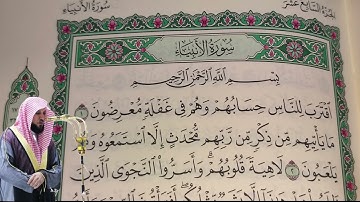 سُورَةُ الأَنبِيَاءِ
الجُزءُ السَّابِعَ عَشَرَ
سُورَةُ الأَنبِيَاءِ
بِسْمِ اللَّهِ الرَّحْمَٰنِ الرَّحِيمِ
اقْتَرَبَ لِلنَّاسِ حِسَابُهُمْ وَهُمْ فِي غَفْلَةٍ مُّعْرِضُونَ ١
مَا يَأْتِيهِم مِّن ذِكْرٍ مِّن رَّبِّهِم مُّحْدَثٍ إِلَّا اسْتَمَعُوهُ وَهُمْ
يَلْعَبُونَ ٢ لَاهِيَةً قُلُوبُهُمْ وَأَسَرُّوا النَّجْوَى الَّذِينَ